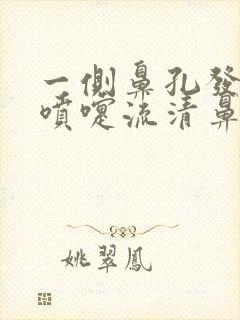 一側鼻孔發
噴嚏流清鼻
姚翠鳳